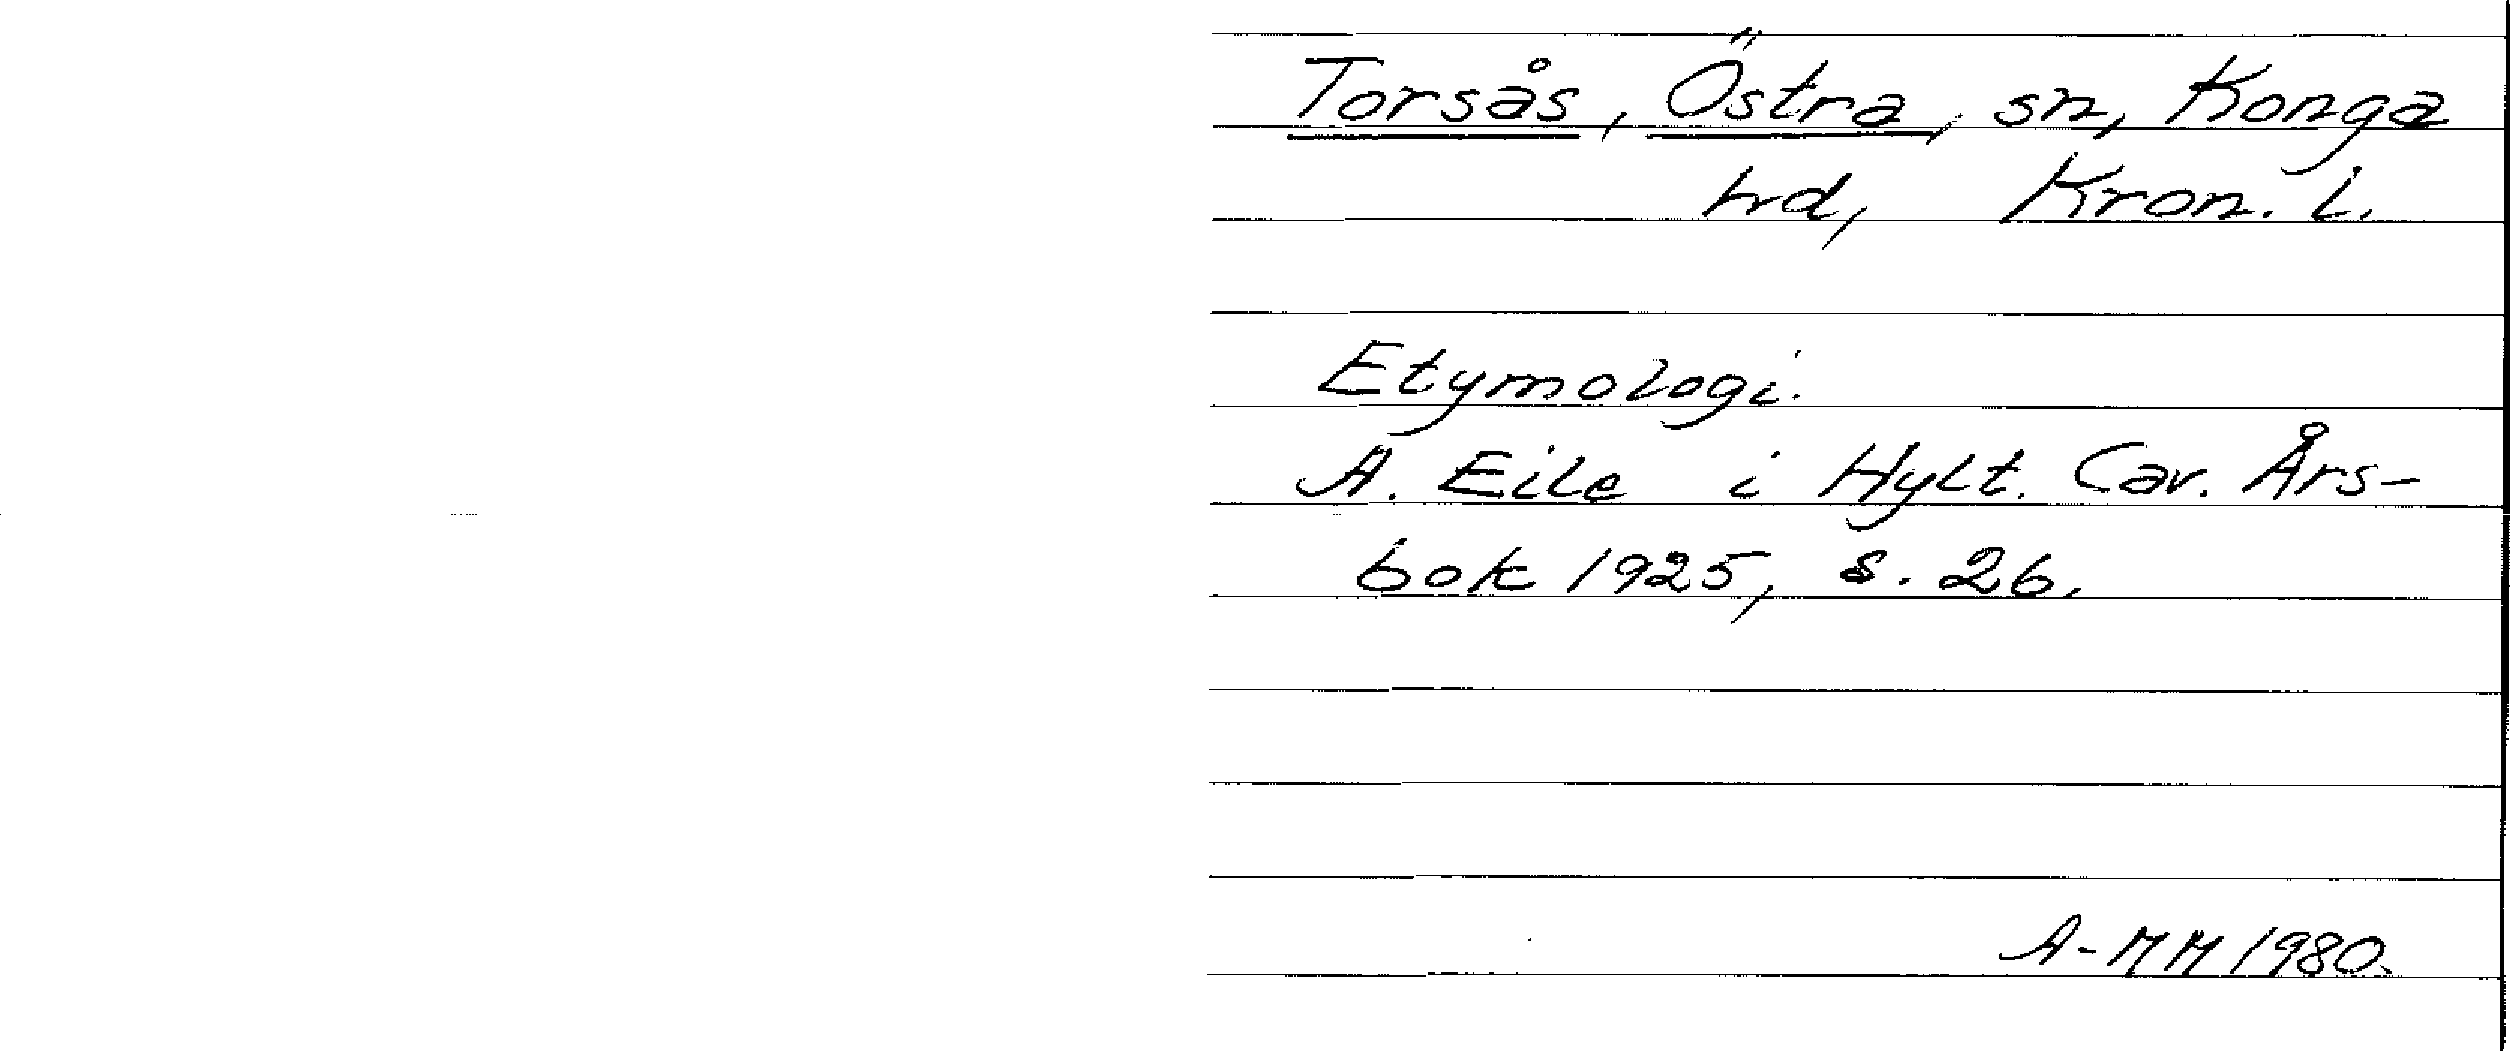 Torsås, Östra, sn, Konga
hd, Kron. l.
Etymologi.
A. Eile i Hylt. Cav. Års-
bok 1925, s. 26.
A-MM 1980.